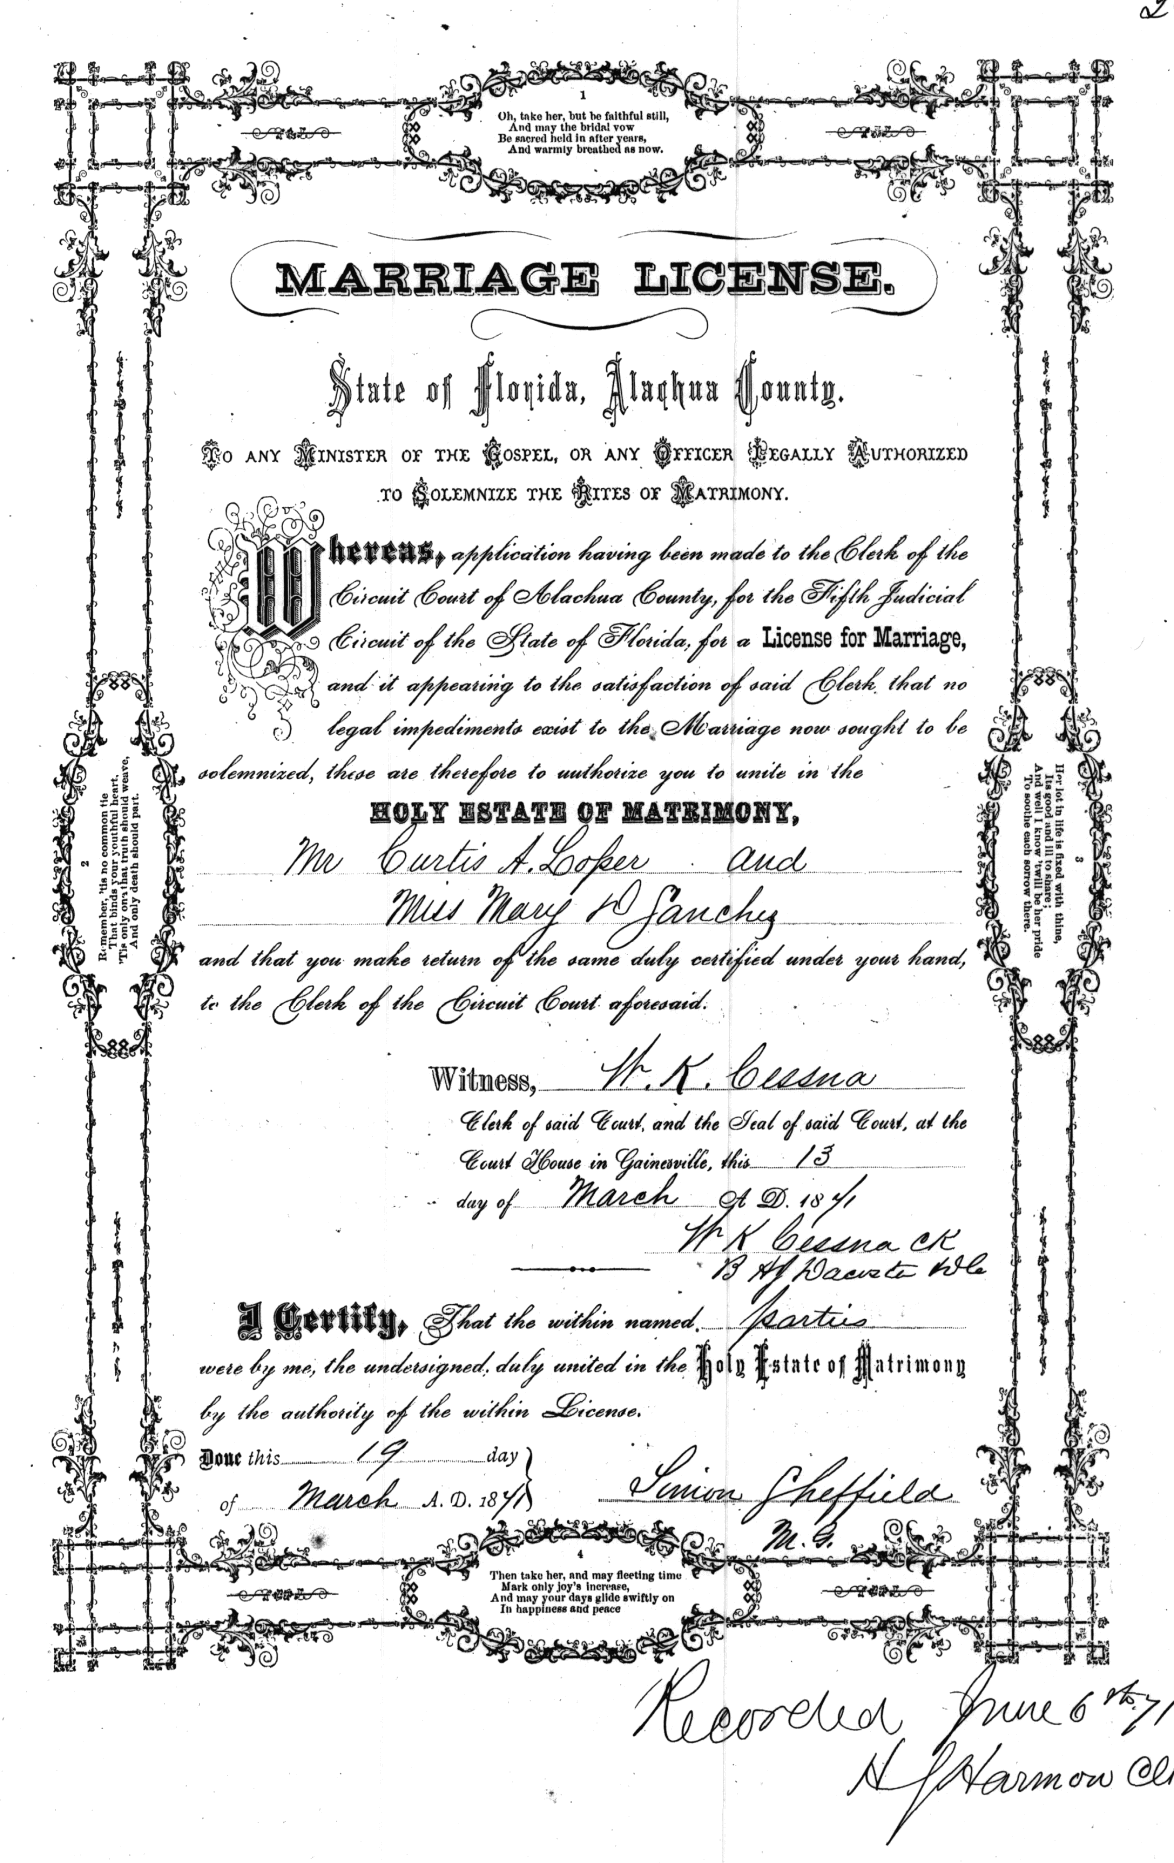 2
1
Oh, take her, but be faithful still,
And may the bridal vow
Be sacred held in after years,
And warmly breathed as now.
MARRIAGE LICENSE.
State of Florida, Alachua County.
TO ANY MINISTER OF THE GOSPEL, OR ANY OFFICER LEGALLY AUTHORIZED
TO SOLEMNIZE THE RITES OF MATRIMONY.
Whereas, application having been made to the Clerk of the
Circuit Court of Alachua County, for the Fifth Judicial
Circuit of the State of Florida, for a License for Marriage,
and it appearing to the satisfaction of said Clerk that no
legal impediments exist to the Marriage now sought to be
solemnized, these are therefore to authorize you to unite in the
HOLY ESTATE OF MATRIMONY,
Mr Curtis A. Loper and
Miss Mary D Sanchez
and that you make return of the same duly certified under your hand,
to the Clerk of the Circuit Court aforesaid.
2
Remember, 'tis no common tie
That binds your youthful heart,
'Tis only on that truth should weave,
And only death should part.
3
Her lot in life is fixed with thine,
Its good and ill to share;
And well I know 'twill be her pride
To soothe each sorrow there.
Witness, W. K. Cessna
Clerk of said Court, and the Seal of said Court, at the
Court House in Gainesville, this 13
day of March A D. 1871
W K Cessna CK
I Certify, That the within named parties
were by me, the undersigned, duly united in the Holy Estate of Matrimony
by the authority of the within License.
Done this 19 day
of March A. D. 1871
Simon Sheffield
M. G.
4
Then take her, and may fleeting time
Mark only joy's increase,
And may your days glide swiftly on
In happiness and peace
Recorded June 6th 71
H J Harmon Cl